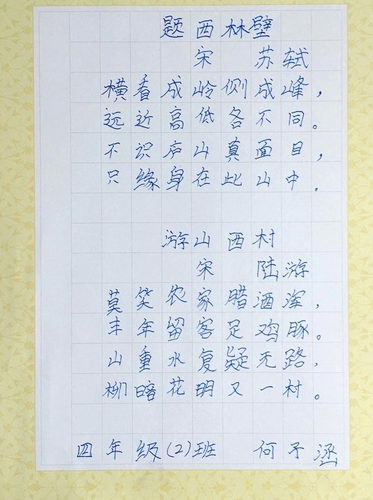 题西林壁
宋 苏轼
横看成岭侧成峰，
远近高低各不同。
不识庐山真面目，
只缘身在此山中。
游山西村
宋 陆游
莫笑农家腊酒浑，
丰年留客足鸡豚。
山重水复疑无路，
柳暗花明又一村。
四年级(2)班 何予涵